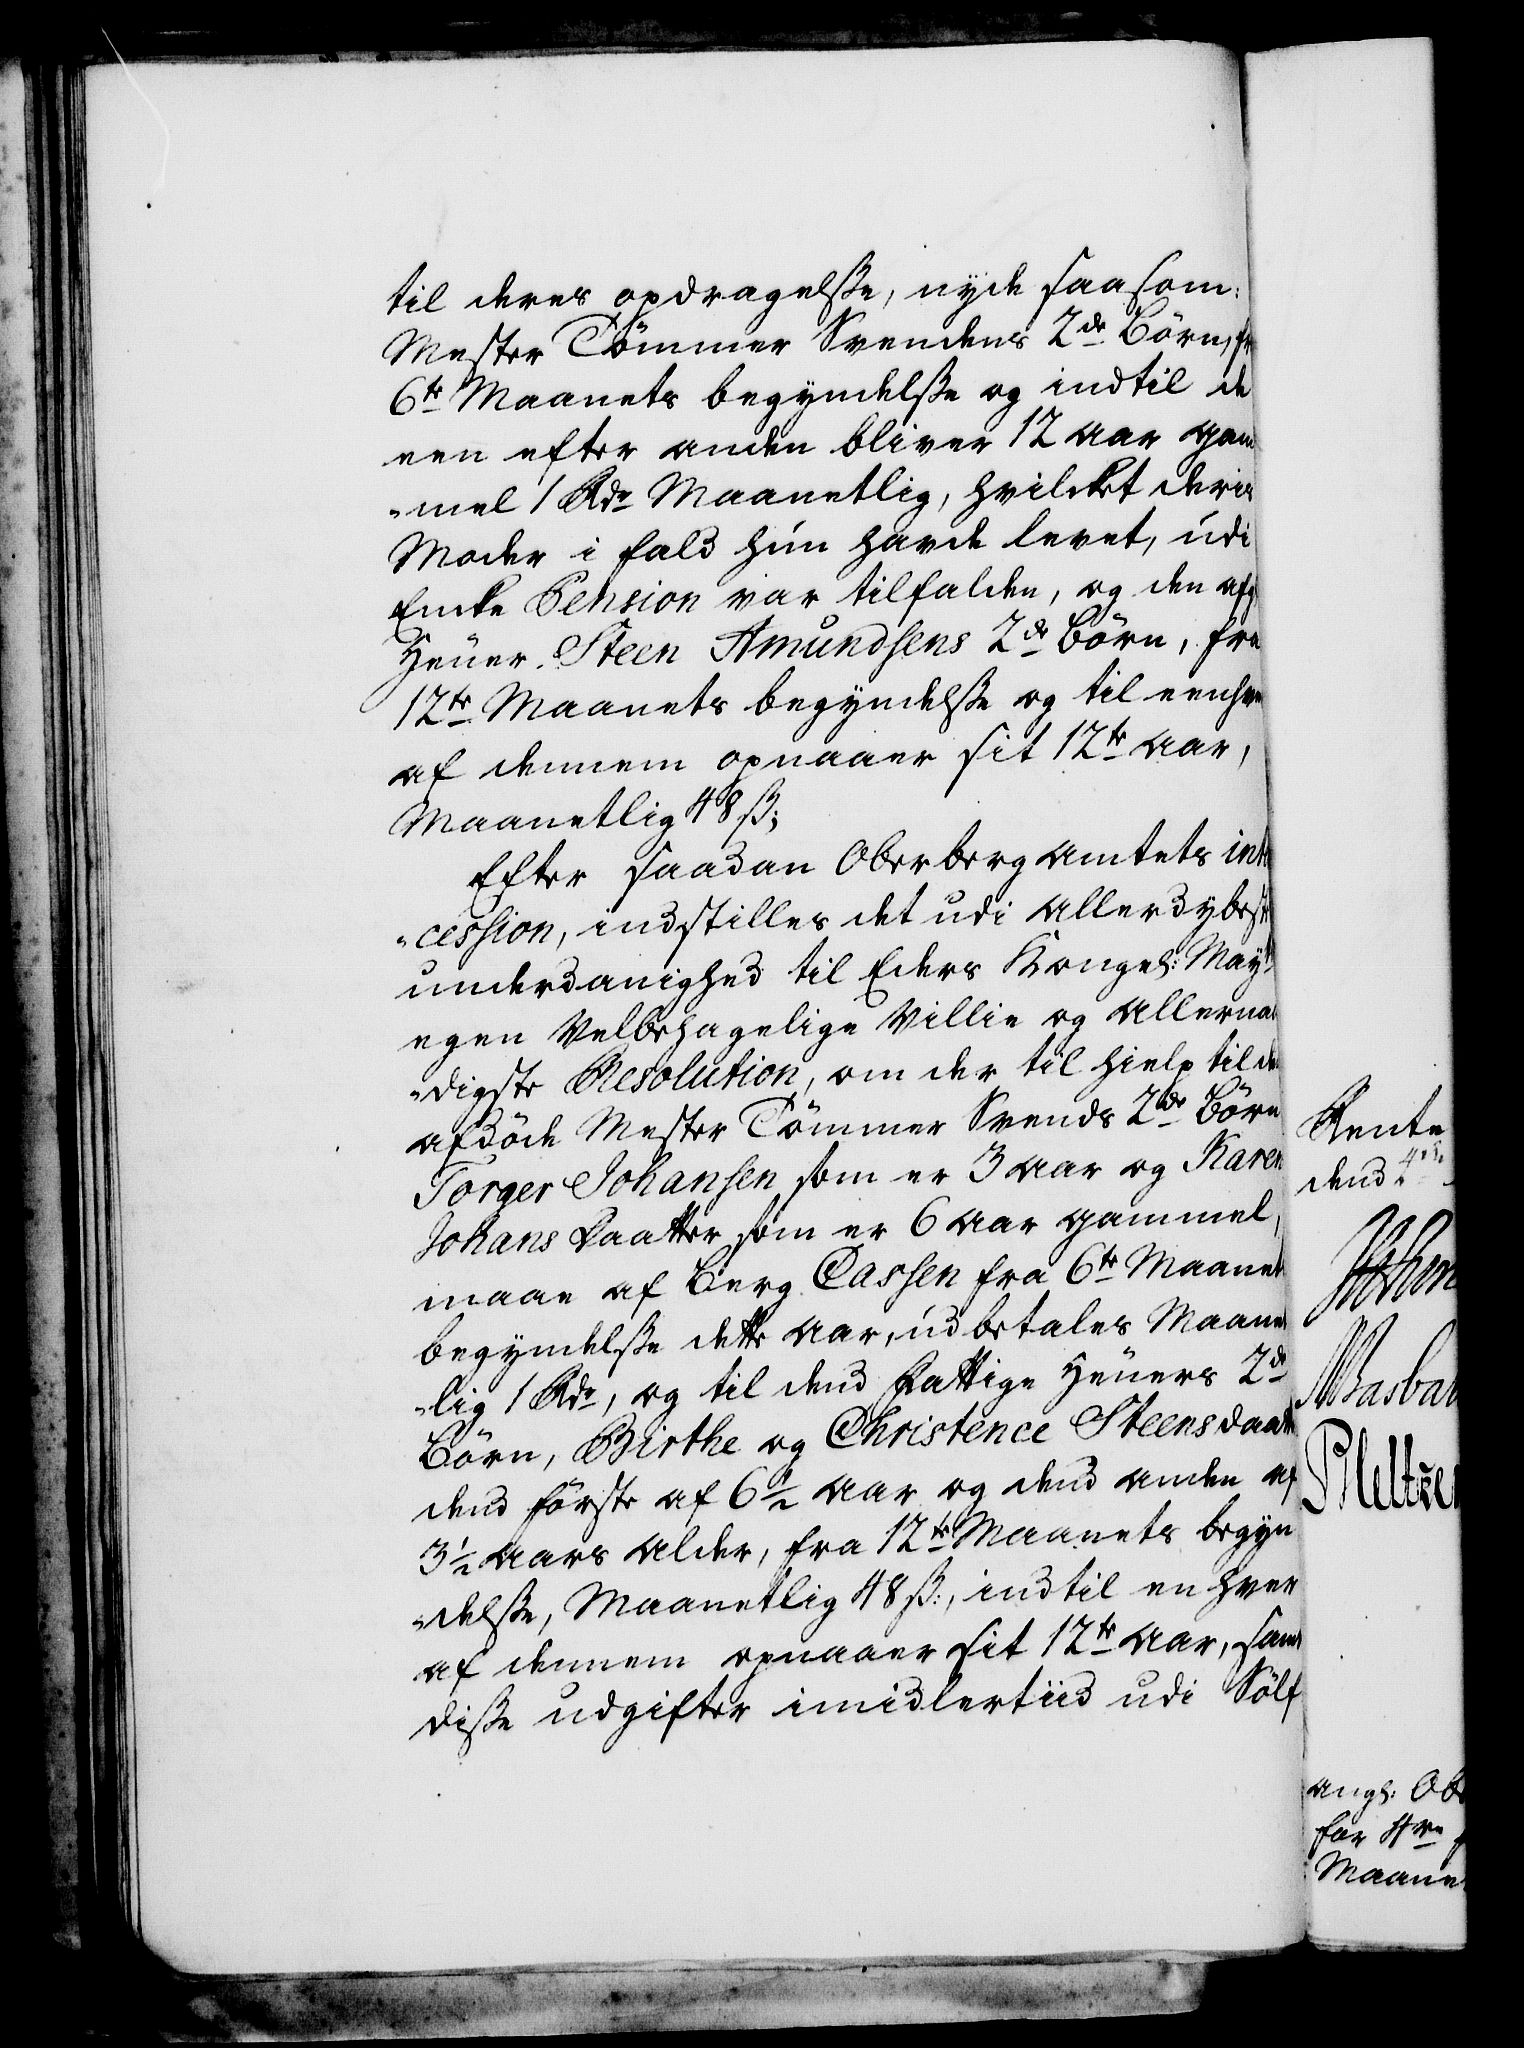 til deres opdragelße, nyde saasom:
Mester Tömmer Svendens 2de Börn, fr
6te Maanets begyndelße og indtil de
een efter anden bliver 12 aar gam
-mel 1 Rdr Maanetlig, hvilcket deris
Moder i fald hun havde levet, udi
Encke Pension var tilfalden, og den afg
Heuer Steen Amundsens 2de Börn, fra
12te Maanets begyndelße og til eenhver
af dennem opnaaer sit 12te aar,
Maanetlig 48 ß;
Efter saadan Oberberg amtets inte
-cession, indstilles det udi allerdybeste
underdanighed til Eders Kongel: Mayts
egen Velbehagelige Villie og allernaa
-digste Resolution, om der til hielp til de
afdöde Mester Tömmer Svends 2de Börn
Torger Johansen som er 3 aar og Karen
Johans Daatter som er 6 aar gammel,
maae af Berg Cassen fra 6te Maanet
begyndelße dette aar, udbetales Maanet
-lig 1 Rdr, og til dend Fattige Heuers 2de
Börn, Birthe og Christence Steensdaatt
dend förste af 6½ aar og dend anden af
3½ aars alder, fra 12te Maanets begyn
-delße, Maanetlig 48 ß:, indtil en hver
af dennem opnaaer sit 12te aar, samt
diße udgifter imidlertiid udi Sölf
Rente
dend 4de
angl: Obe
for 4re
Maane